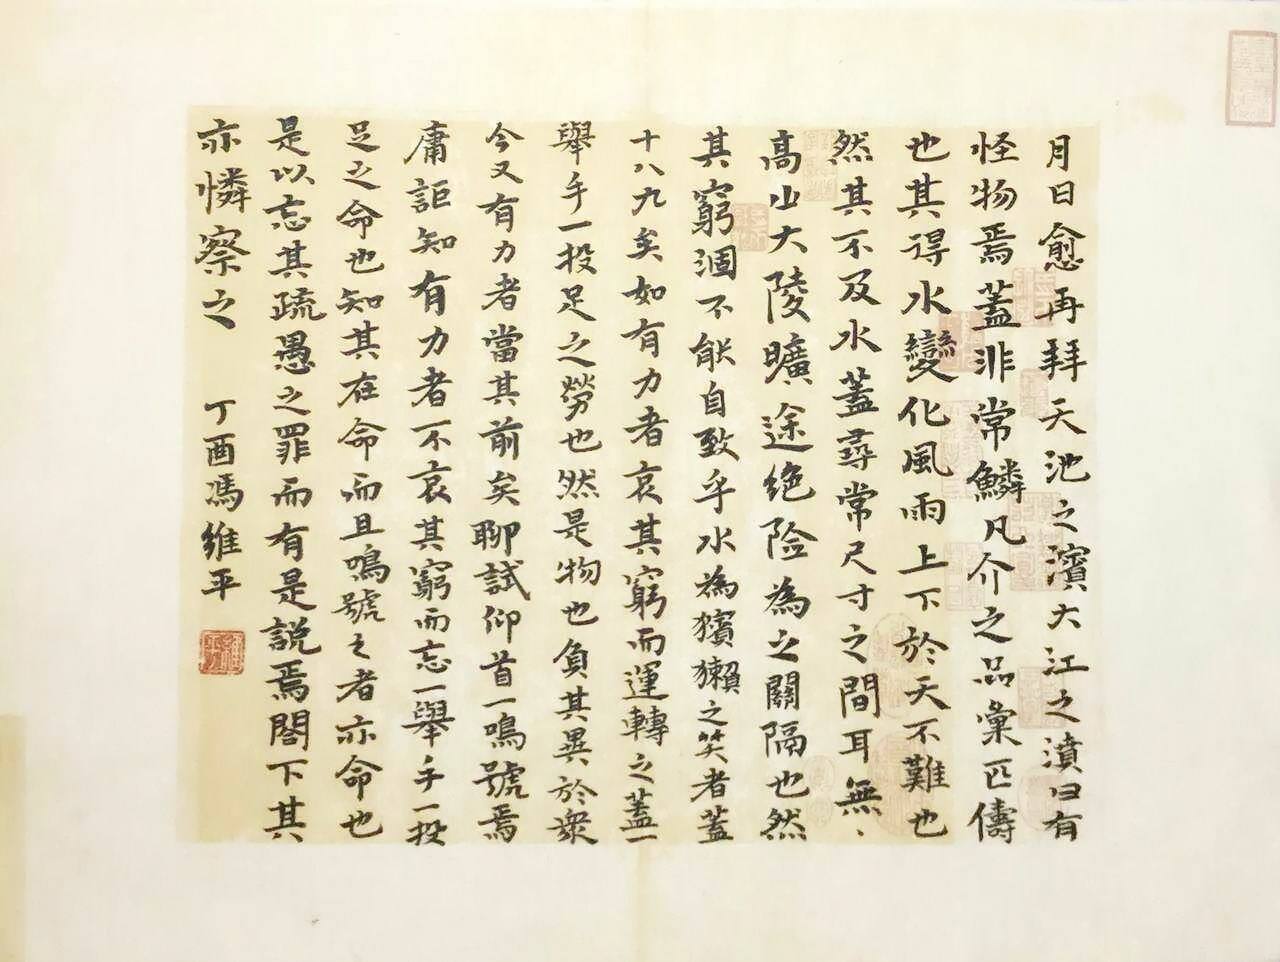 月日愈再拜天池之濱大江之濆曰有
怪物焉蓋非常鱗凡介之品彙匹儔
也其得水變化風雨上下於天不難也
然其不及水蓋尋常尺寸之間耳無、
高山大陵曠途绝险為之關隔也然
其窮涸不能自致乎水為獱獺之笑者蓋
十八九矣如有力者哀其窮而運轉之蓋一
舉手一投足之勞也然是物也負其異於衆
今又有力者當其前矣聊試仰首一鳴號焉
庸詎知有力者不哀其窮而忘一舉手一投
足之命也知其在命而且鳴號之者亦命也
是以忘其疏愚之罪而有是説焉閤下其
亦憐察之
丁酉馮維平
維平